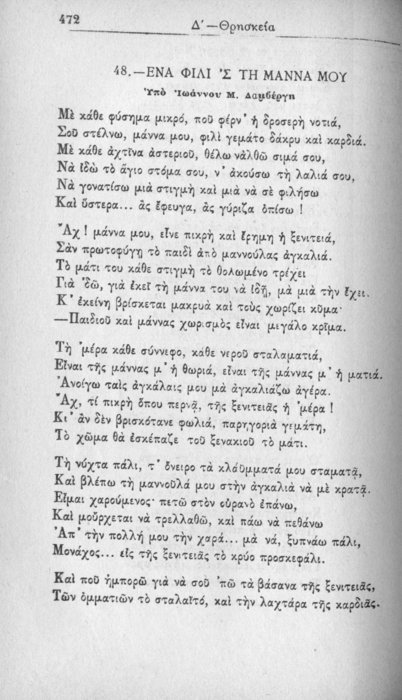 472
Δ′ —Θρησκεία
48.—ΕΝΑ ΦΙΛΙ 'Σ ΤΗ ΜΑΝΝΑ ΜΟΥ
Ὑπὸ Ἰωάννου Μ. Δαμβέργη
Μὲ κάθε φύσημα μικρό, ποῦ φέρν' ἡ δροσερὴ νοτιά,
Σοῦ στέλνω, μάννα μου, φιλὶ γεμάτο δάκρυ καὶ καρδιά.
Μὲ κάθε ἀχτῖνα ἀστεριοῦ, θέλω νάλθῶ σιμά σου,
Νὰ ἰδῶ τὸ ἅγιο στόμα σου, ν' ἀκούσω τὴ λαλιά σου,
Νὰ γονατίσω μιὰ στιγμὴ καὶ μιὰ νὰ σὲ φιλήσω
Καὶ ὕστερα... ἂς ἔφευγα, ἂς γύριζα ὀπίσω !
Ἄχ ! μάννα μου, εἶνε πικρὴ καὶ ἔρημη ἡ ξενιτειά,
Σὰν πρωτοφύγη τὸ παιδὶ ἀπὸ μαννούλας ἀγκαλιά.
Τὸ μάτι του κάθε στιγμὴ τὸ θολωμένο τρέχει
Γιὰ 'δῶ, γιὰ ἐκεῖ τὴ μάννα του νὰ ἰδῇ, μὰ μιὰ τὴν ἔχει.
Κ' ἐκείνη βρίσκεται μακρυὰ καὶ τοὺς χωρίζει κῦμα·
—Παιδιοῦ καὶ μάννας χωρισμὸς εἶναι μεγάλο κρῖμα.
Τὴ 'μέρα κάθε σύννεφο, κάθε νεροῦ σταλαματιά,
Εἶναι τῆς μάννας μ' ἡ θωριά, εἶναι τῆς μάννας μ' ἡ ματιά.
Ἀνοίγω ταὶς ἀγκάλαις μου μὰ ἀγκαλιάζω ἀγέρα.
Ἄχ, τί πικρὴ ὅπου περνᾷ, τῆς ξενιτειᾶς ἡ 'μέρα !
Κι' ἂν δὲν βρισκότανε φωλιά, παρηγοριὰ γεμάτη,
Τὸ χῶμα θὰ ἐσκέπαζε τοῦ ξενακιοῦ τὸ μάτι.
Τὴ νύχτα πάλι, τ' ὄνειρο τὰ κλάυμματά μου σταματᾷ,
Καὶ βλέπω τὴ μαννοῦλά μου στὴν ἀγκαλιὰ νὰ μὲ κρατᾷ.
Εἶμαι χαρούμενος· πετῶ στὸν οὐρανὸ ἐπάνω,
Καὶ μοὔρχεται νὰ τρελλαθῶ, καὶ πάω νὰ πεθάνω
Ἀπ' τὴν πολλή μου τὴν χαρά... μὰ νά, ξυπνάω πάλι,
Μονάχος... εἰς τῆς ξενιτειᾶς τὸ κρύο προσκεφάλι.
Καὶ ποῦ ἠμπορῶ γιὰ νὰ σοῦ 'πῶ τὰ βάσανα τῆς ξενιτειᾶς,
Τῶν ὀμματιῶν τὸ σταλαϊτό, καὶ τὴν λαχτάρα τῆς καρδιᾶς.